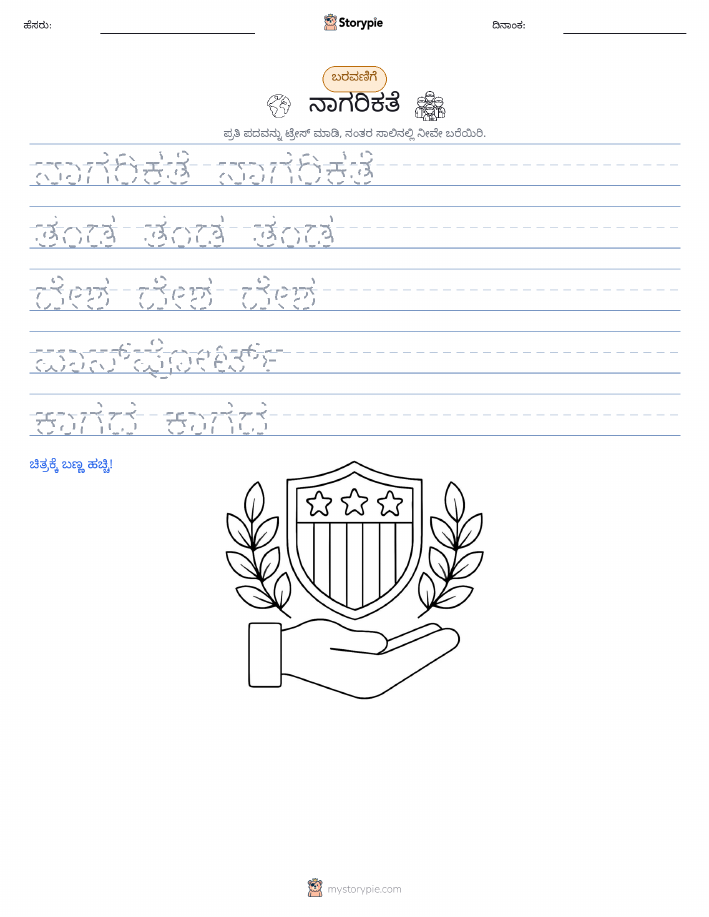 ಹೆಸರು:
Storypie
ದಿನಾಂಕ:
ಬರವಣಿಗೆ
ನಾಗರಿಕತೆ
ಪ್ರತಿ ಪದವನ್ನು ಟ್ರೇಸ್ ಮಾಡಿ, ನಂತರ ಸಾಲಿನಲ್ಲಿ ನೀವೇ ಬರೆಯಿರಿ.
ನಾಗರಿಕತೆ ನಾಗರಿಕತೆ
ತಂಡ ತಂಡ ತಂಡ
ದೇಶ ದೇಶ ದೇಶ
ಪಾಸ್‌ಪೋರ್ಟ್
ಕಾಗದ ಕಾಗದ
ಚಿತ್ರಕ್ಕೆ ಬಣ್ಣ ಹಚ್ಚಿ!
mystorypie.com